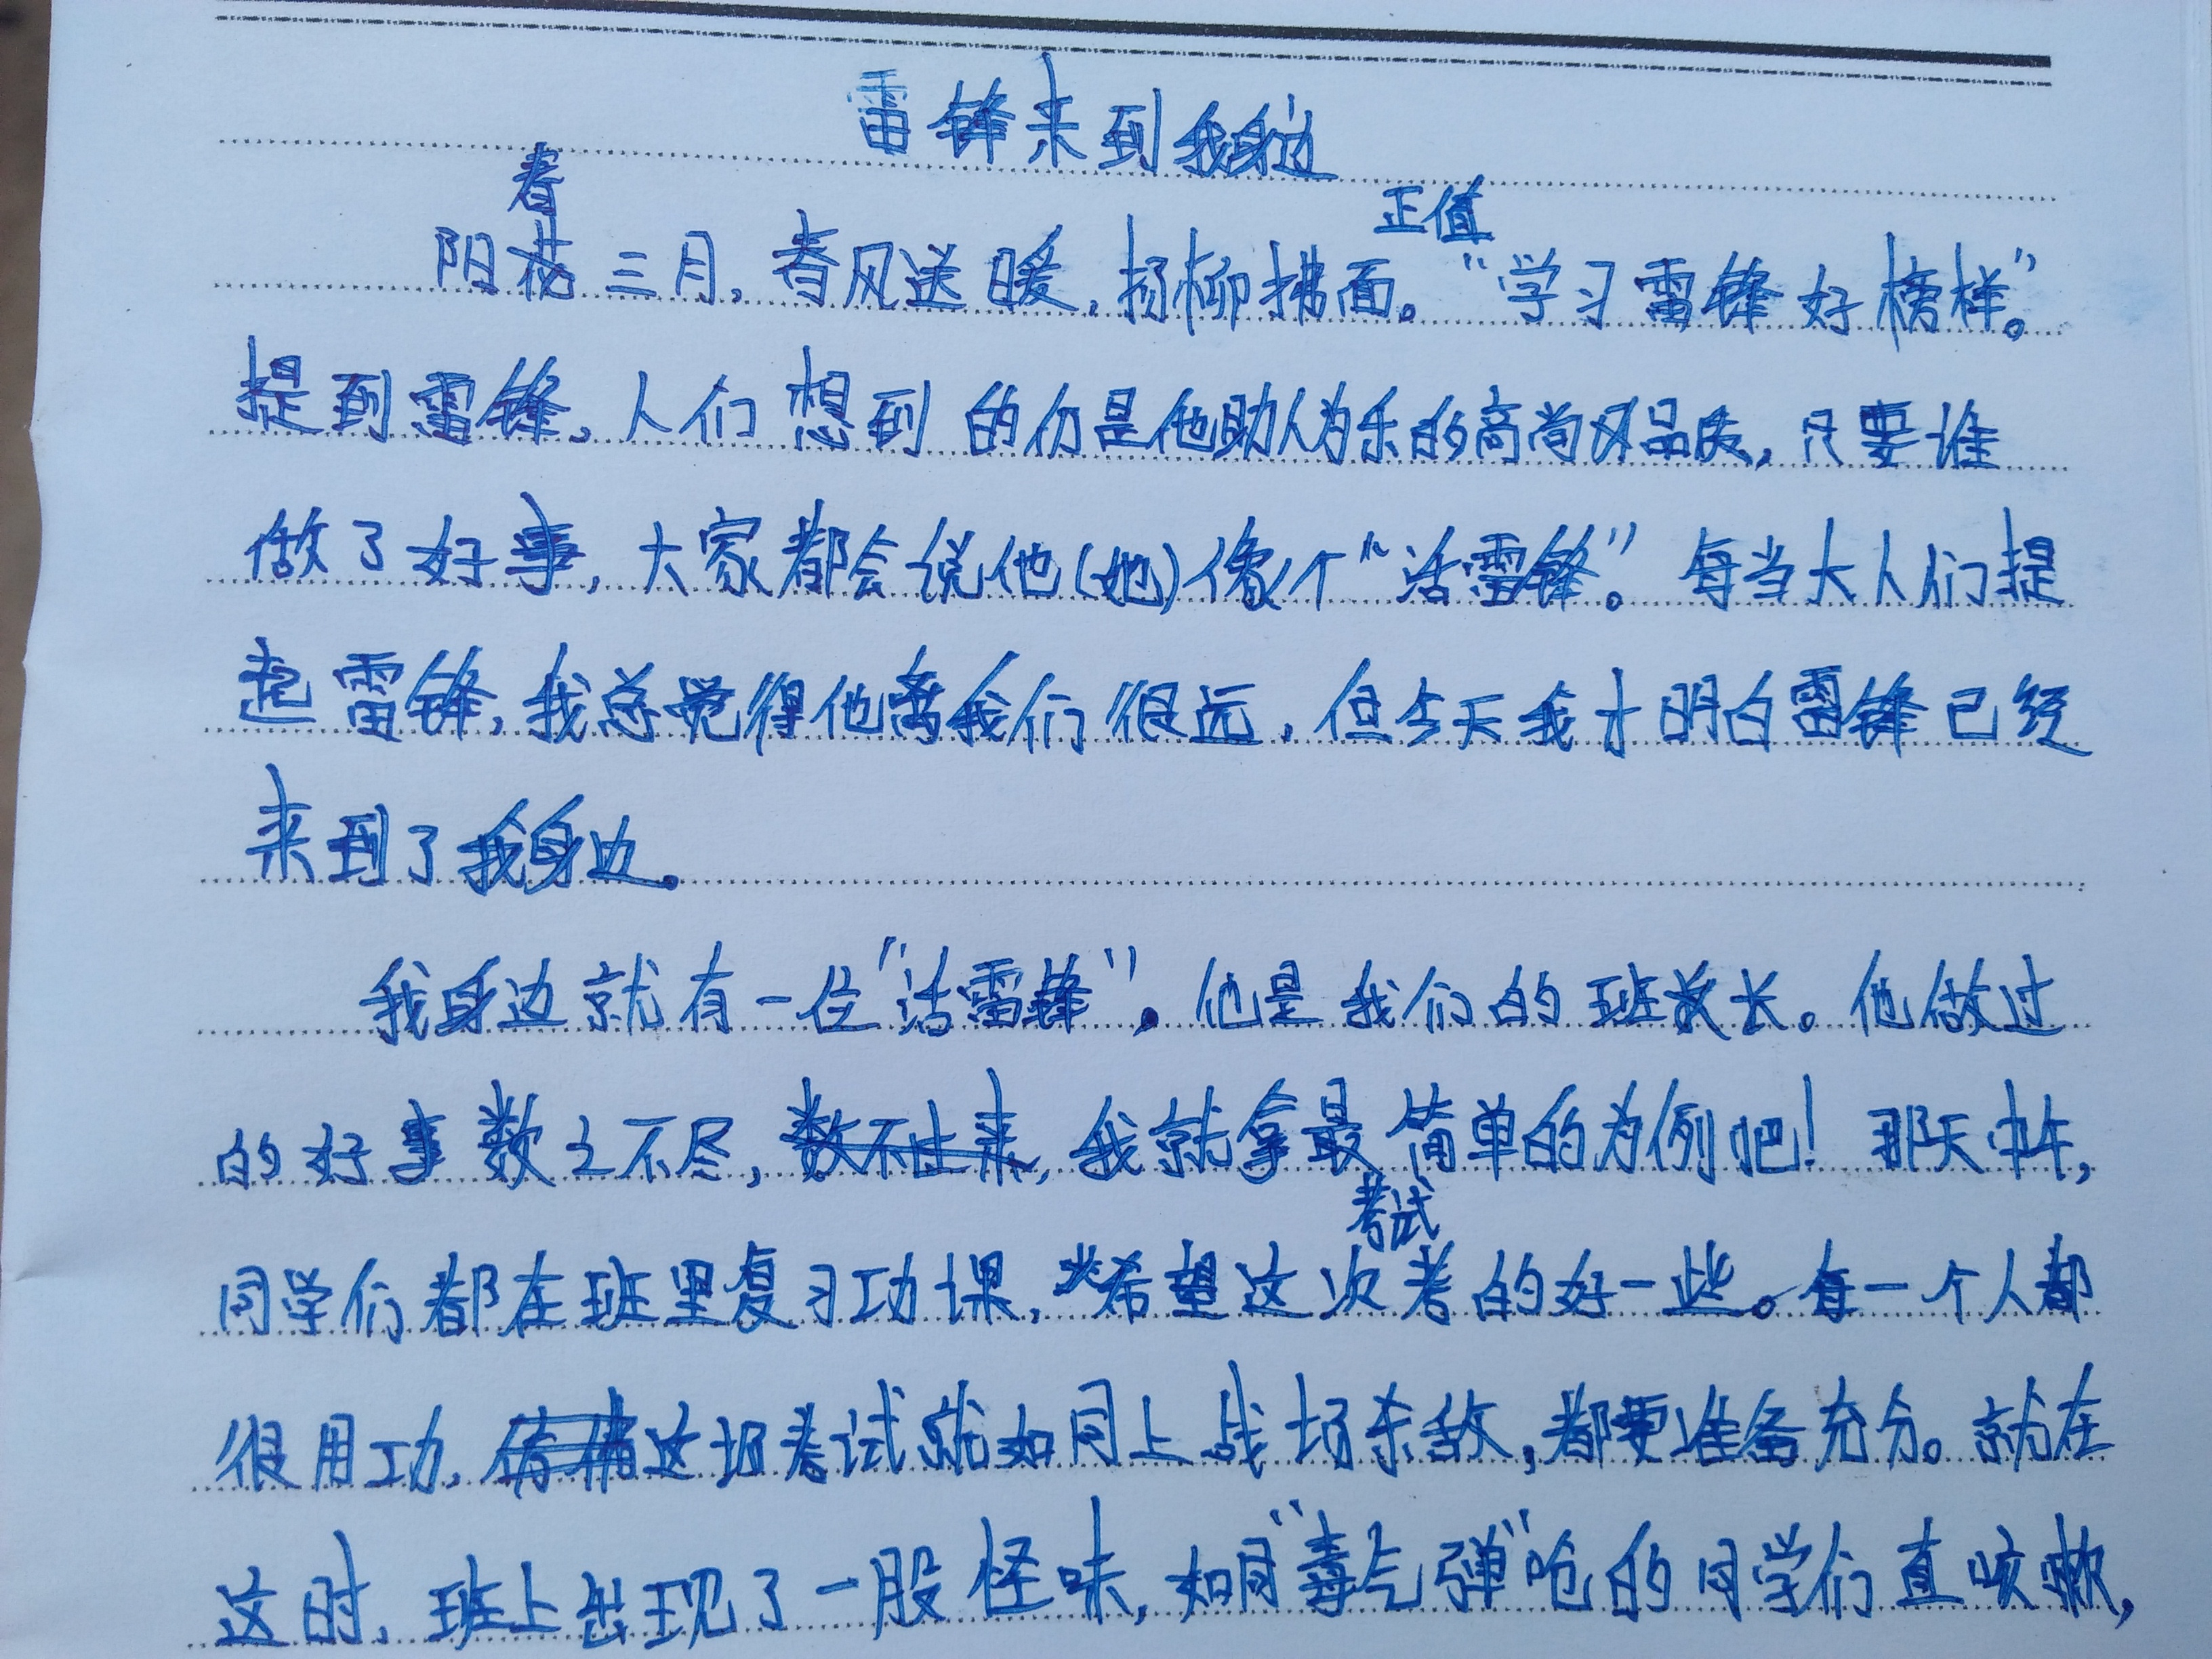 雷锋来到我身边
春 正值
阳花三月，春风送暖，扬柳拂面。“学习雷锋好榜样”。
提到雷锋，人们想到的仍是他助人为乐的高尚品质，只要谁
做了好事，大家都会说他（她）像个“活雷锋”。每当大人们提
起雷锋，我总觉得他离我们很远，但今天我才明白雷锋已经
来到了我身边。
我身边就有一位“活雷锋”。他是我们的班长。他做过
的好事数之不尽，数不出来，我就拿最简单的为例吧！那天中午，
考试
同学们都在班里复习功课，希望这次考的好一些。每一个人都
很用功，仿佛这场考试就如同上战场杀敌，都要准备充分。就在
这时，班上出现了一股怪味，如同“毒气弹”呛的同学们直咳嗽，